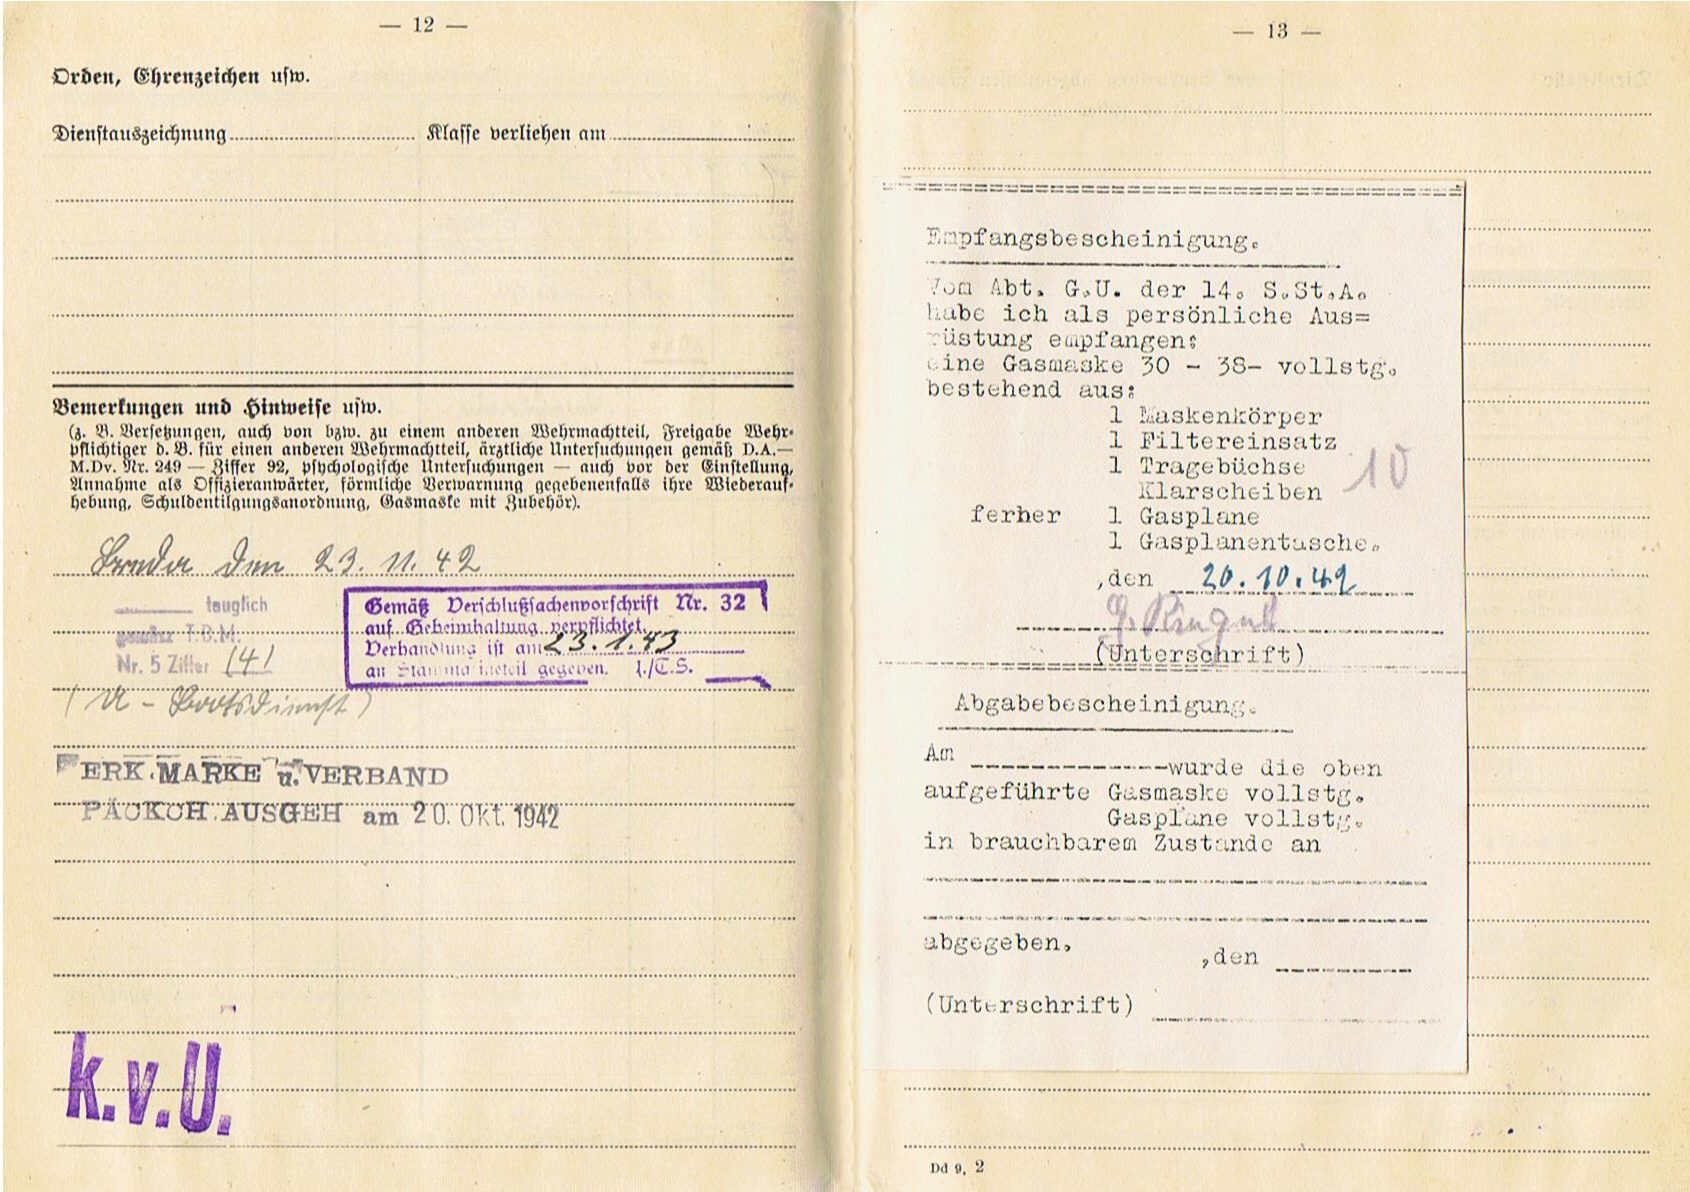 — 12 —
Orden, Ehrenzeichen usw.
Dienstauszeichnung Klasse verliehen am
Bemerkungen und Hinweise usw.
(z. B. Versetzungen, auch von bzw. zu einem anderen Wehrmachtteil, Freigabe Wehr-
pflichtiger d. B. für einen anderen Wehrmachtteil, ärztliche Untersuchungen gemäß D.A.—
M.Dv. Nr. 249 — Ziffer 92, psychologische Untersuchungen — auch vor der Einstellung,
Annahme als Offizieranwärter, förmliche Verwarnung gegebenenfalls ihre Wiederauf-
hebung, Schuldentilgungsanordnung, Gasmaske mit Zubehör).
Breda den 23. 11. 42
tauglich
gemäß T.B.M.
Nr. 5 Ziffer 141
(U - Bootsdienst)
Gemäß Verschlußsachenvorschrift Nr. 32
auf Geheimhaltung verpflichtet.
Verhandlung ist am 23.1.43
an Stammarineteil gegeben. I./T.S.
ERK.MARKE u. VERBAND
PÄCKCH.AUSGEH am 20. Okt. 1942
k.v.U.
— 13 —
Empfangsbescheinigung.
Vom Abt. G.U. der 14. S.St.A.
habe ich als persönliche Aus=
rüstung empfangen:
eine Gasmaske 30 - 38- vollstg.
bestehend aus:
1 Maskenkörper
1 Filtereinsatz
1 Tragebüchse
Klarscheiben 10
ferher 1 Gasplane
1 Gasplanentasche.
,den 20.10.42
(Unterschrift)
Abgabebescheinigung.
Am ------------wurde die oben
aufgeführte Gasmaske vollstg.
Gasplane vollstg.
in brauchbarem Zustande an
abgegeben.
,den
(Unterschrift)
Dd 9, 2